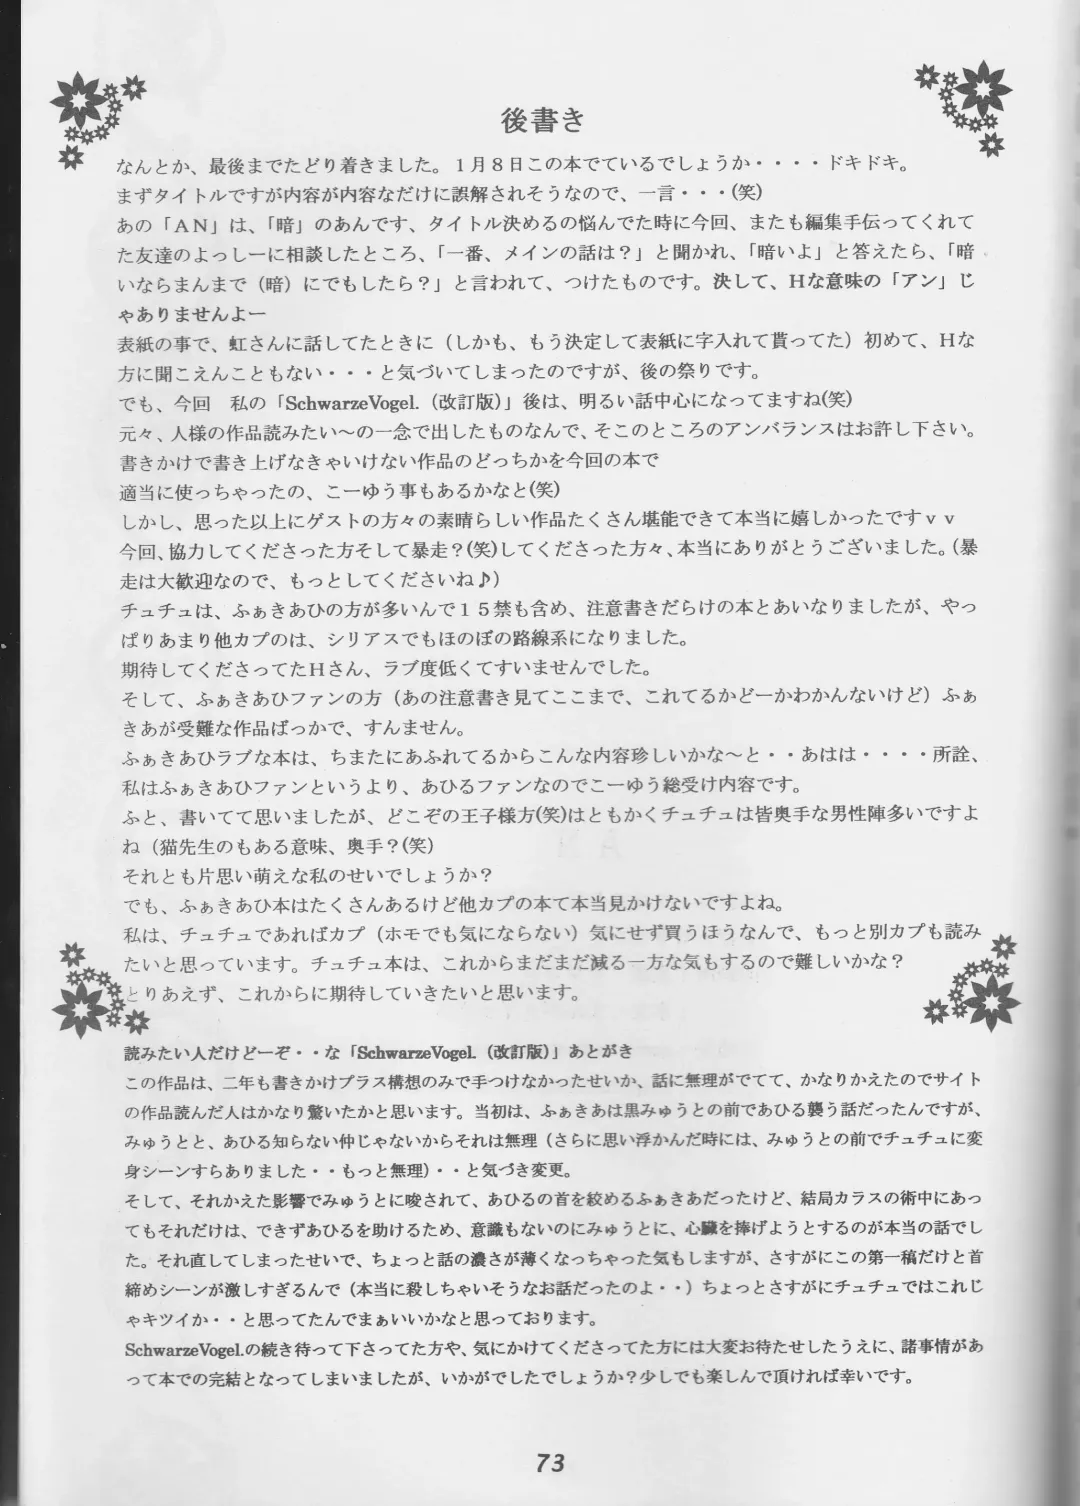 後書き
なんとか、最後までたどり着きました。１月８日この本でているでしょうか・・・・ドキドキ。
まずタイトルですが内容が内容なだけに誤解されそうなので、一言・・・(笑)
あの「ＡＮ」は、「暗」のあんです、タイトル決めるの悩んでた時に今回、またも編集手伝ってくれて
た友達のよっしーに相談したところ、「一番、メインの話は？」と聞かれ、「暗いよ」と答えたら、「暗
いならまんまで（暗）にでもしたら？」と言われて、つけたものです。決して、Ｈな意味の「アン」じ
ゃありませんよー
表紙の事で、虹さんに話してたときに（しかも、もう決定して表紙に字入れて貰ってた）初めて、Ｈな
方に聞こえんこともない・・・と気づいてしまったのですが、後の祭りです。
でも、今回　私の「SchwarzeVogel.（改訂版）」後は、明るい話中心になってますね(笑)
元々、人様の作品読みたい～の一念で出したものなんで、そこのところのアンバランスはお許し下さい。
書きかけで書き上げなきゃいけない作品のどっちかを今回の本で
適当に使っちゃったの、こーゆう事もあるかなと(笑)
しかし、思った以上にゲストの方々の素晴らしい作品たくさん堪能できて本当に嬉しかったですｖｖ
今回、協力してくださった方そして暴走？(笑)してくださった方々、本当にありがとうございました。（暴
走は大歓迎なので、もっとしてくださいね♪）
チュチュは、ふぁきあひの方が多いんで１５禁も含め、注意書きだらけの本とあいなりましたが、やっ
ぱりあまり他カプのは、シリアスでもほのぼの路線系になりました。
期待してくださってたＨさん、ラブ度低くてすいませんでした。
そして、ふぁきあひファンの方（あの注意書き見てここまで、これてるかどーかわかんないけど）ふぁ
きあが受難な作品ばっかで、すんません。
ふぁきあひラブな本は、ちまたにあふれてるからこんな内容珍しいかな～と・・あはは・・・・所詮、
私はふぁきあひファンというより、あひるファンなのでこーゆう総受け内容です。
ふと、書いてて思いましたが、どこぞの王子様方(笑)はともかくチュチュは皆奥手な男性陣多いですよ
ね（猫先生のもある意味、奥手？(笑)
それとも片思い萌えな私のせいでしょうか？
でも、ふぁきあひ本はたくさんあるけど他カプの本て本当見かけないですよね。
私は、チュチュであればカプ（ホモでも気にならない）気にせず買うほうなんで、もっと別カプも読み
たいと思っています。チュチュ本は、これからまだまだ減る一方な気もするので難しいかな？
とりあえず、これからに期待していきたいと思います。
読みたい人だけどーぞ・・な「SchwarzeVogel.（改訂版）」あとがき
この作品は、二年も書きかけプラス構想のみで手つけなかったせいか、話に無理がでてて、かなりかえたのでサイト
の作品読んだ人はかなり驚いたかと思います。当初は、ふぁきあは黒みゅうとの前であひる襲う話だったんですが、
みゅうとと、あひる知らない仲じゃないからそれは無理（さらに思い浮かんだ時には、みゅうとの前でチュチュに変
身シーンすらありました・・もっと無理）・・と気づき変更。
そして、それかえた影響でみゅうとに唆されて、あひるの首を絞めるふぁきあだったけど、結局カラスの術中にあっ
てもそれだけは、できずあひるを助けるため、意識もないのにみゅうとに、心臓を捧げようとするのが本当の話でし
た。それ直してしまったせいで、ちょっと話の濃さが薄くなっちゃった気もしますが、さすがにこの第一稿だけと首
締めシーンが激しすぎるんで（本当に殺しちゃいそうなお話だったのよ・・）ちょっとさすがにチュチュではこれじ
ゃキツイか・・と思ってたんでまぁいいかなと思っております。
SchwarzeVogel.の続き待って下さってた方や、気にかけてくださってた方には大変お待たせしたうえに、諸事情があ
って本での完結となってしまいましたが、いかがでしたでしょうか？少しでも楽しんで頂ければ幸いです。
73